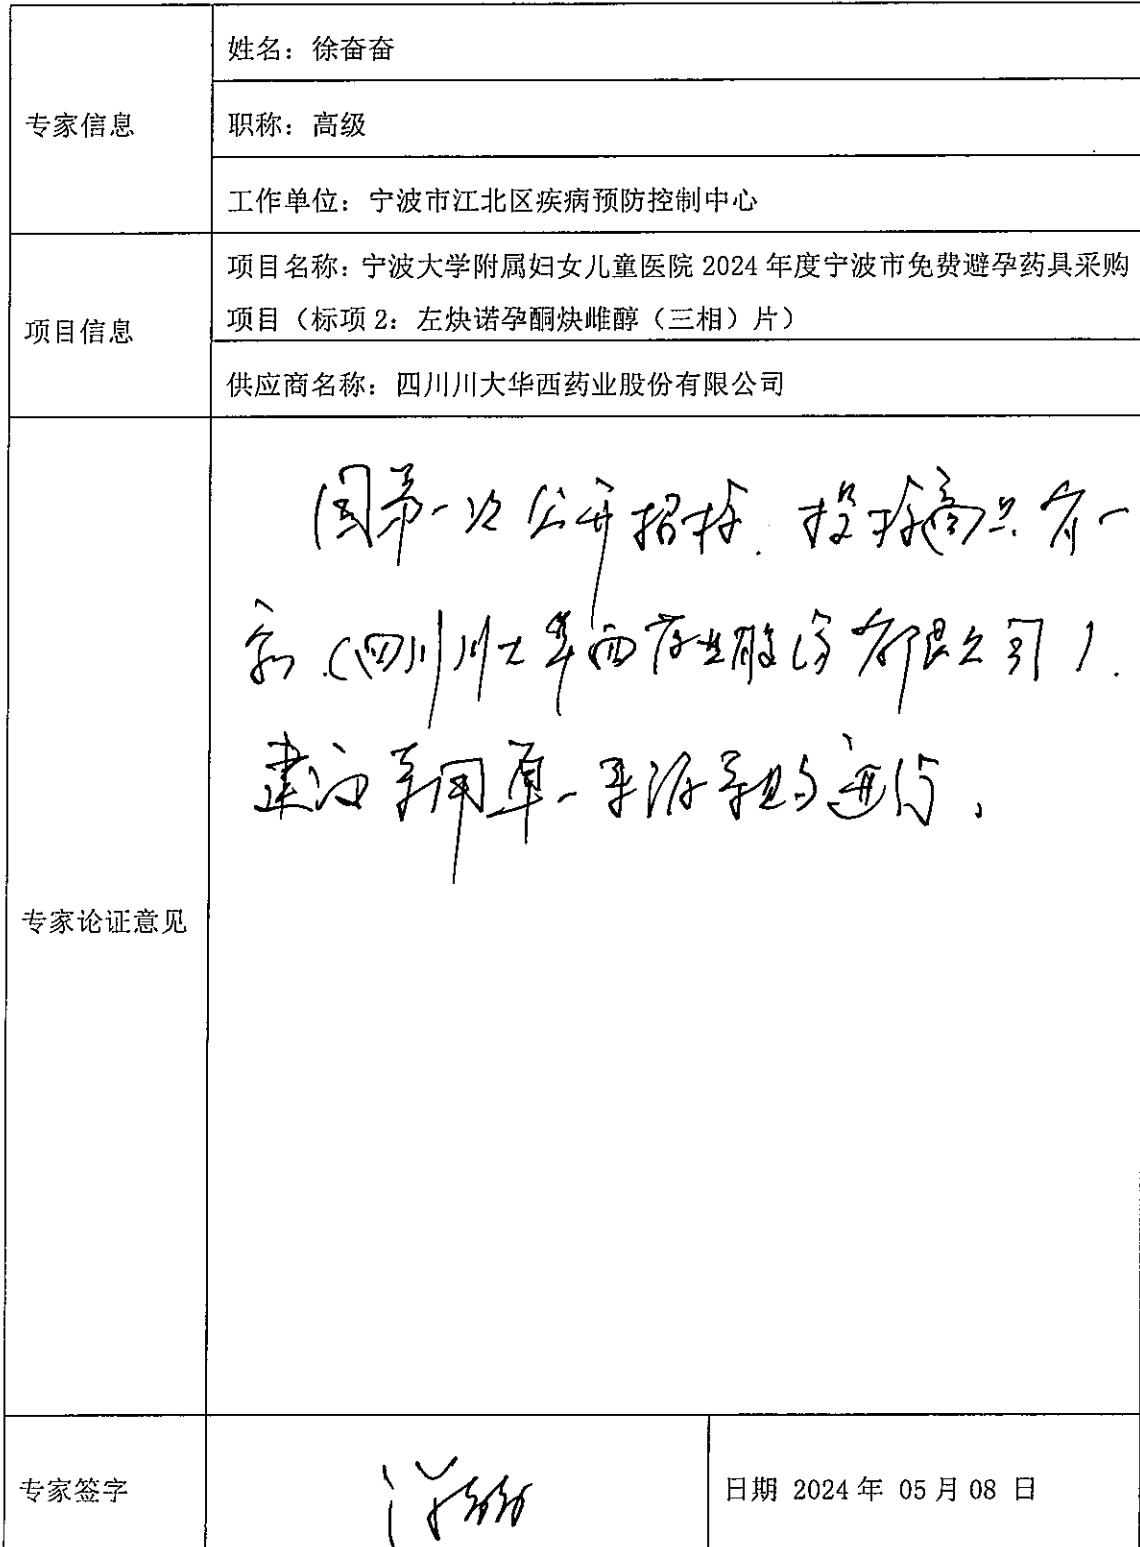 专家信息
姓名：徐奋奋
职称：高级
工作单位：宁波市江北区疾病预防控制中心
项目信息
项目名称：宁波大学附属妇女儿童医院 2024 年度宁波市免费避孕药具采购
项目（标项 2：左炔诺孕酮炔雌醇（三相）片）
供应商名称：四川川大华西药业股份有限公司
专家论证意见
因第一次公开招标，投标商只有一
家（四川川大华西药业股份有限公司）.
建议采用单一来源采购进行。
专家签字
日期 2024 年 05 月 08 日